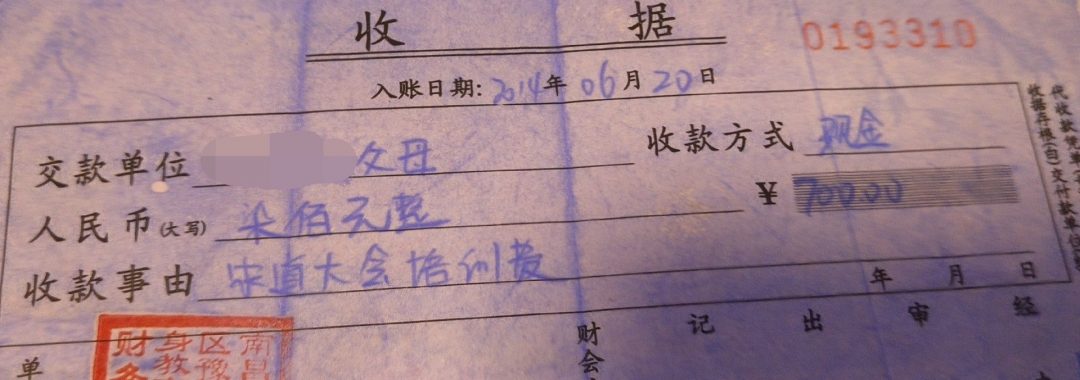 收 据
0193310
入账日期: 2014年 06月 20日
交款单位 父母 收款方式 现金
人民币(大写) 柒佰元整 ¥ 700.00
收款事由 大会培训费
年 月 日
单
财会
记
出
审
经
南昌
区豫
身教
财务
代收款凭单
收据存根(白)交付款单位